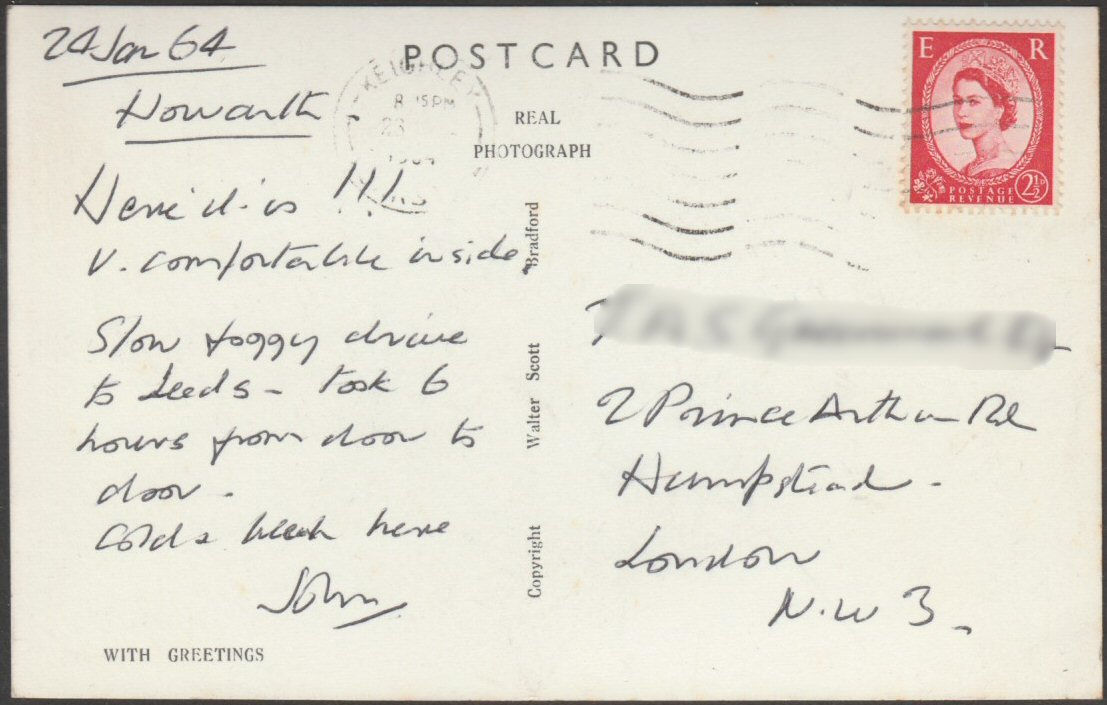 24 Jan 64
Howarth
POSTCARD
KEIGHLEY
8 15PM
REAL
PHOTOGRAPH
Here it is !!!
V. comfortable inside.
Slow foggy drive
to Leeds - took 6
hours from door to
door.
Cold & bleak here
John
WITH GREETINGS
Copyright Walter Scott Bradford
E R
POSTAGE
REVENUE
2½D
2 Prince Arthur Rd
Hampstead.
London
N.W 3.